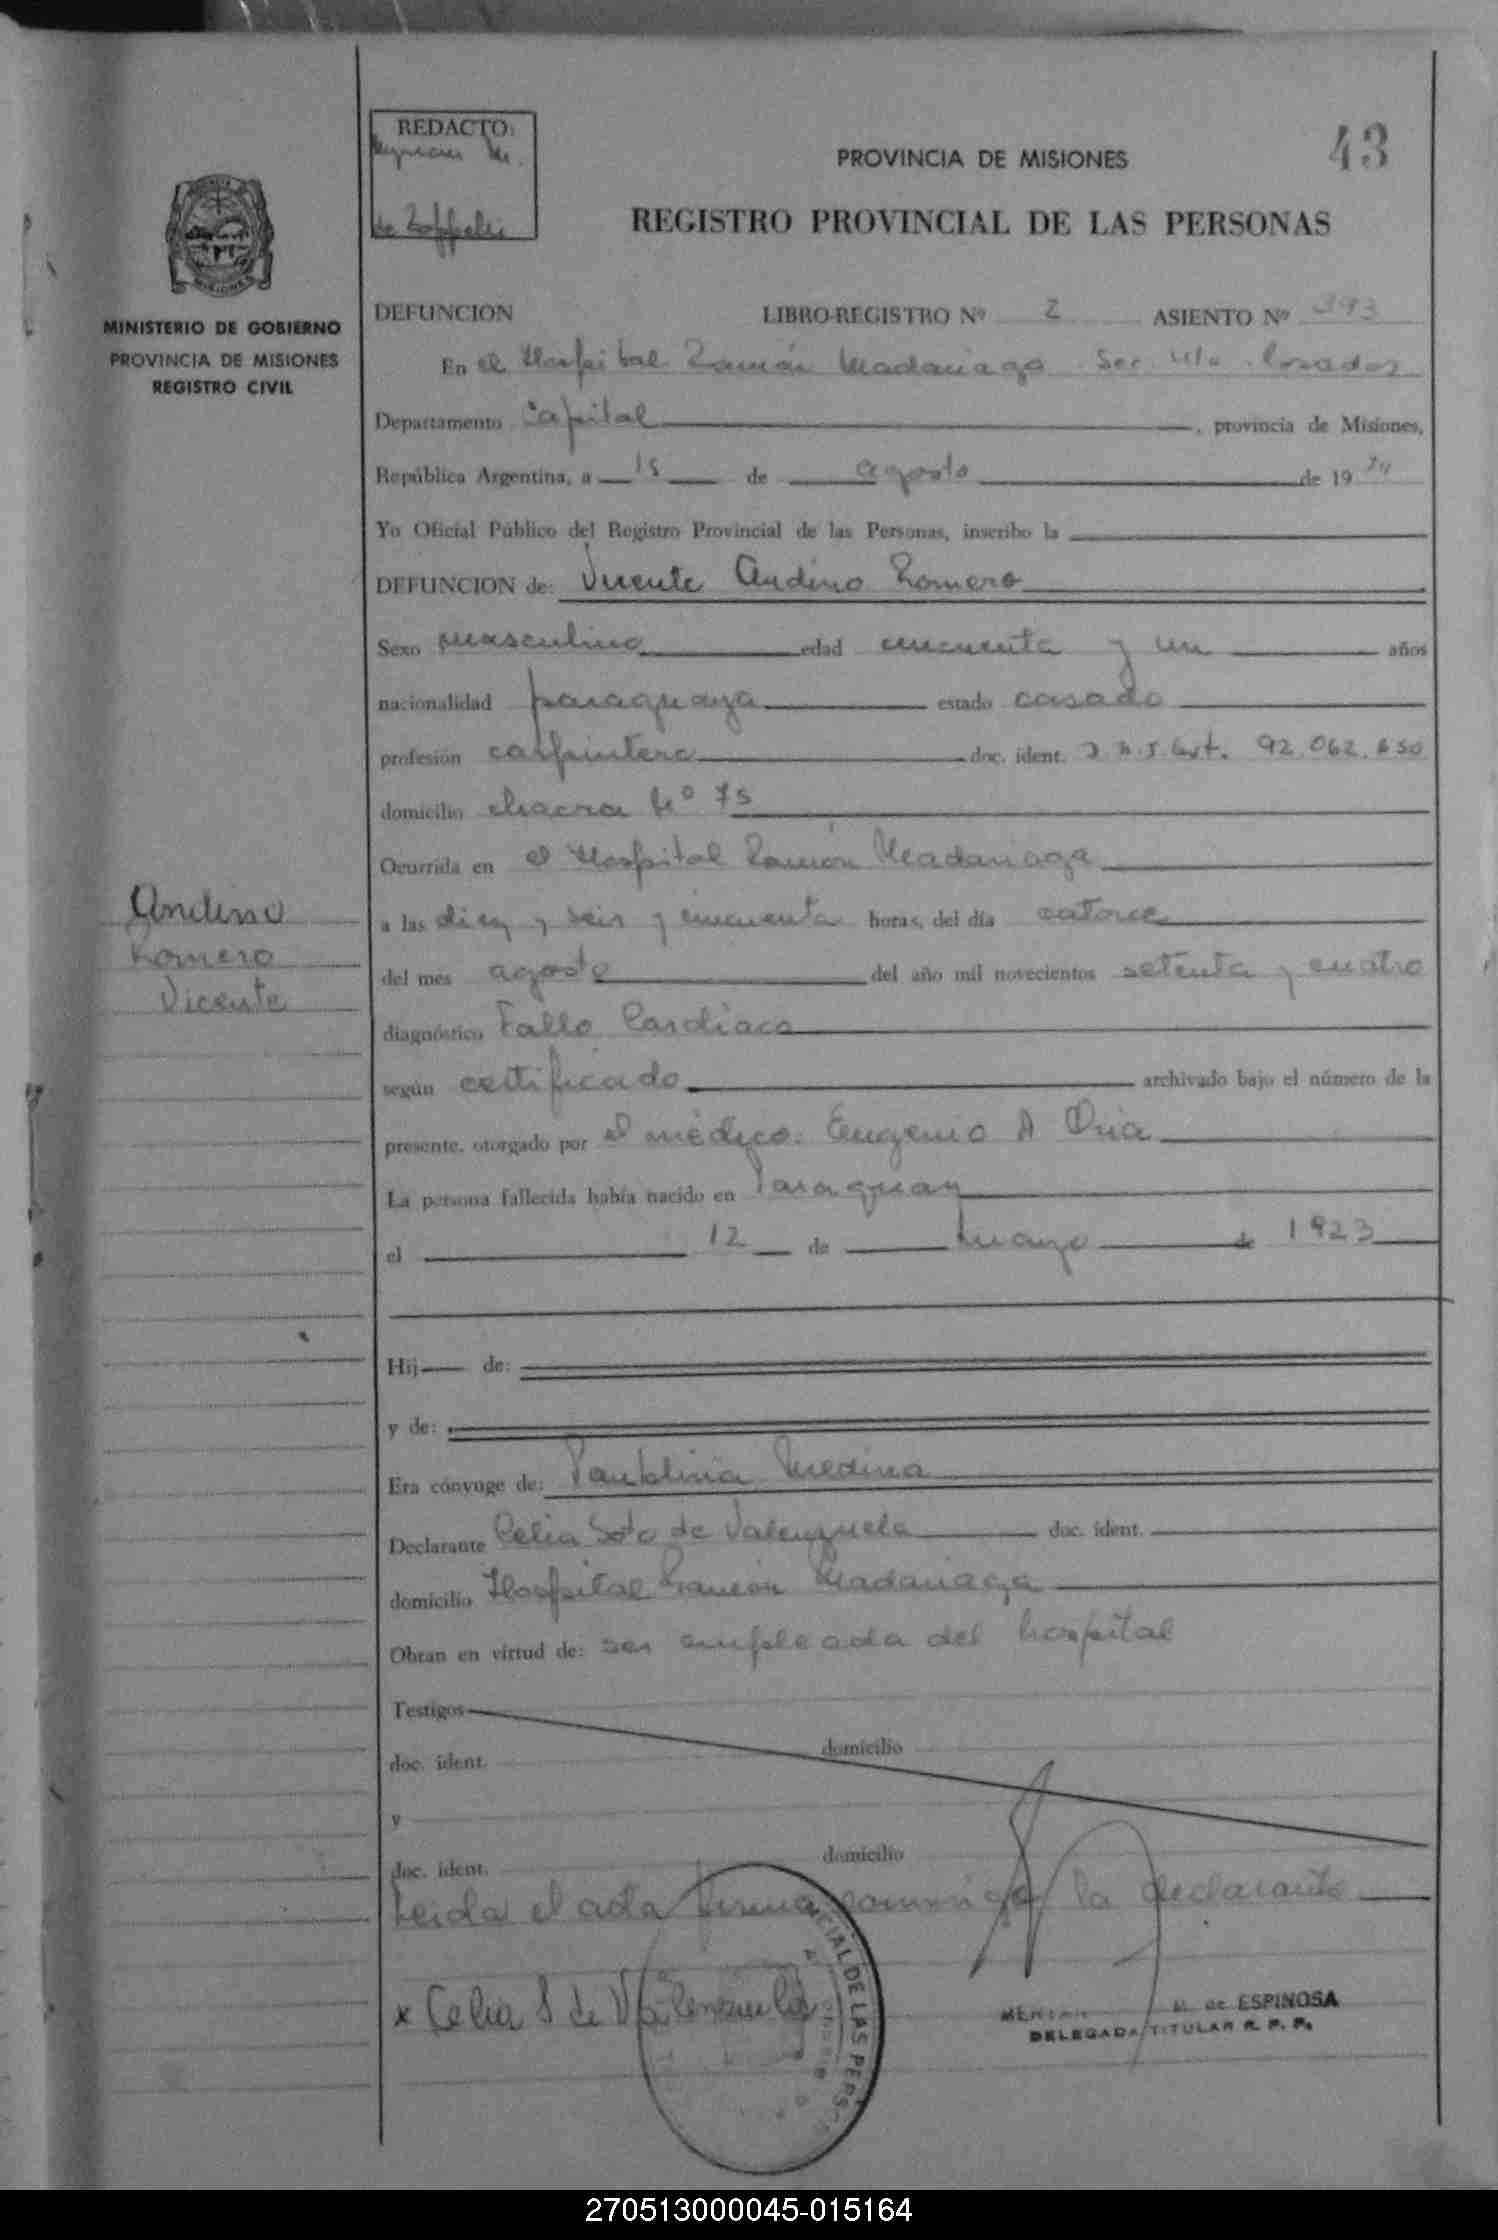 REDACTO:
de Zoppelis
43
PROVINCIA DE MISIONES
REGISTRO PROVINCIAL DE LAS PERSONAS
MINISTERIO DE GOBIERNO
PROVINCIA DE MISIONES
REGISTRO CIVIL
DEFUNCION LIBRO-REGISTRO Nº 2 ASIENTO Nº 393
En el Hospital Ramón Madariaga - Sec. Posadas
Departamento Capital, provincia de Misiones,
República Argentina, a 15 de agosto de 19 74
Yo Oficial Público del Registro Provincial de las Personas, inscribo la
DEFUNCION de: Vicente Andino Romero
Sexo masculino edad cincuenta y un años
nacionalidad paraguaya estado casado
profesión carpintero doc. ident. D.N.I. Ext. 92.062.650
domicilio chacra Nº 75
Ocurrida en el Hospital Ramón Madariaga
a las diez y seis y cincuenta horas, del día catorce
del mes agosto del año mil novecientos setenta y cuatro
diagnóstico Fallo Cardíaco
según certificado archivado bajo el número de la
presente, otorgado por el médico: Eugenio A Oria
La persona fallecida había nacido en Paraguay
el 12 de mayo de 1923
Hij de:
y de:
Era cónyuge de: Paublina Medina
Declarante Celia Soto de Valenzuela doc. ident.
domicilio Hospital Ramón Madariaga
Obran en virtud de: ser empleada del hospital
Testigos
doc. ident. domicilio
y
doc. ident. domicilio
Leida el acta firma conmigo la declarante
x Celia S de Valenzuela
CIAL DE LAS PERSO
M. de ESPINOSA
DELEGADA TITULAR R. P. P.
Andino
Romero
Vicente
270513000045-015164